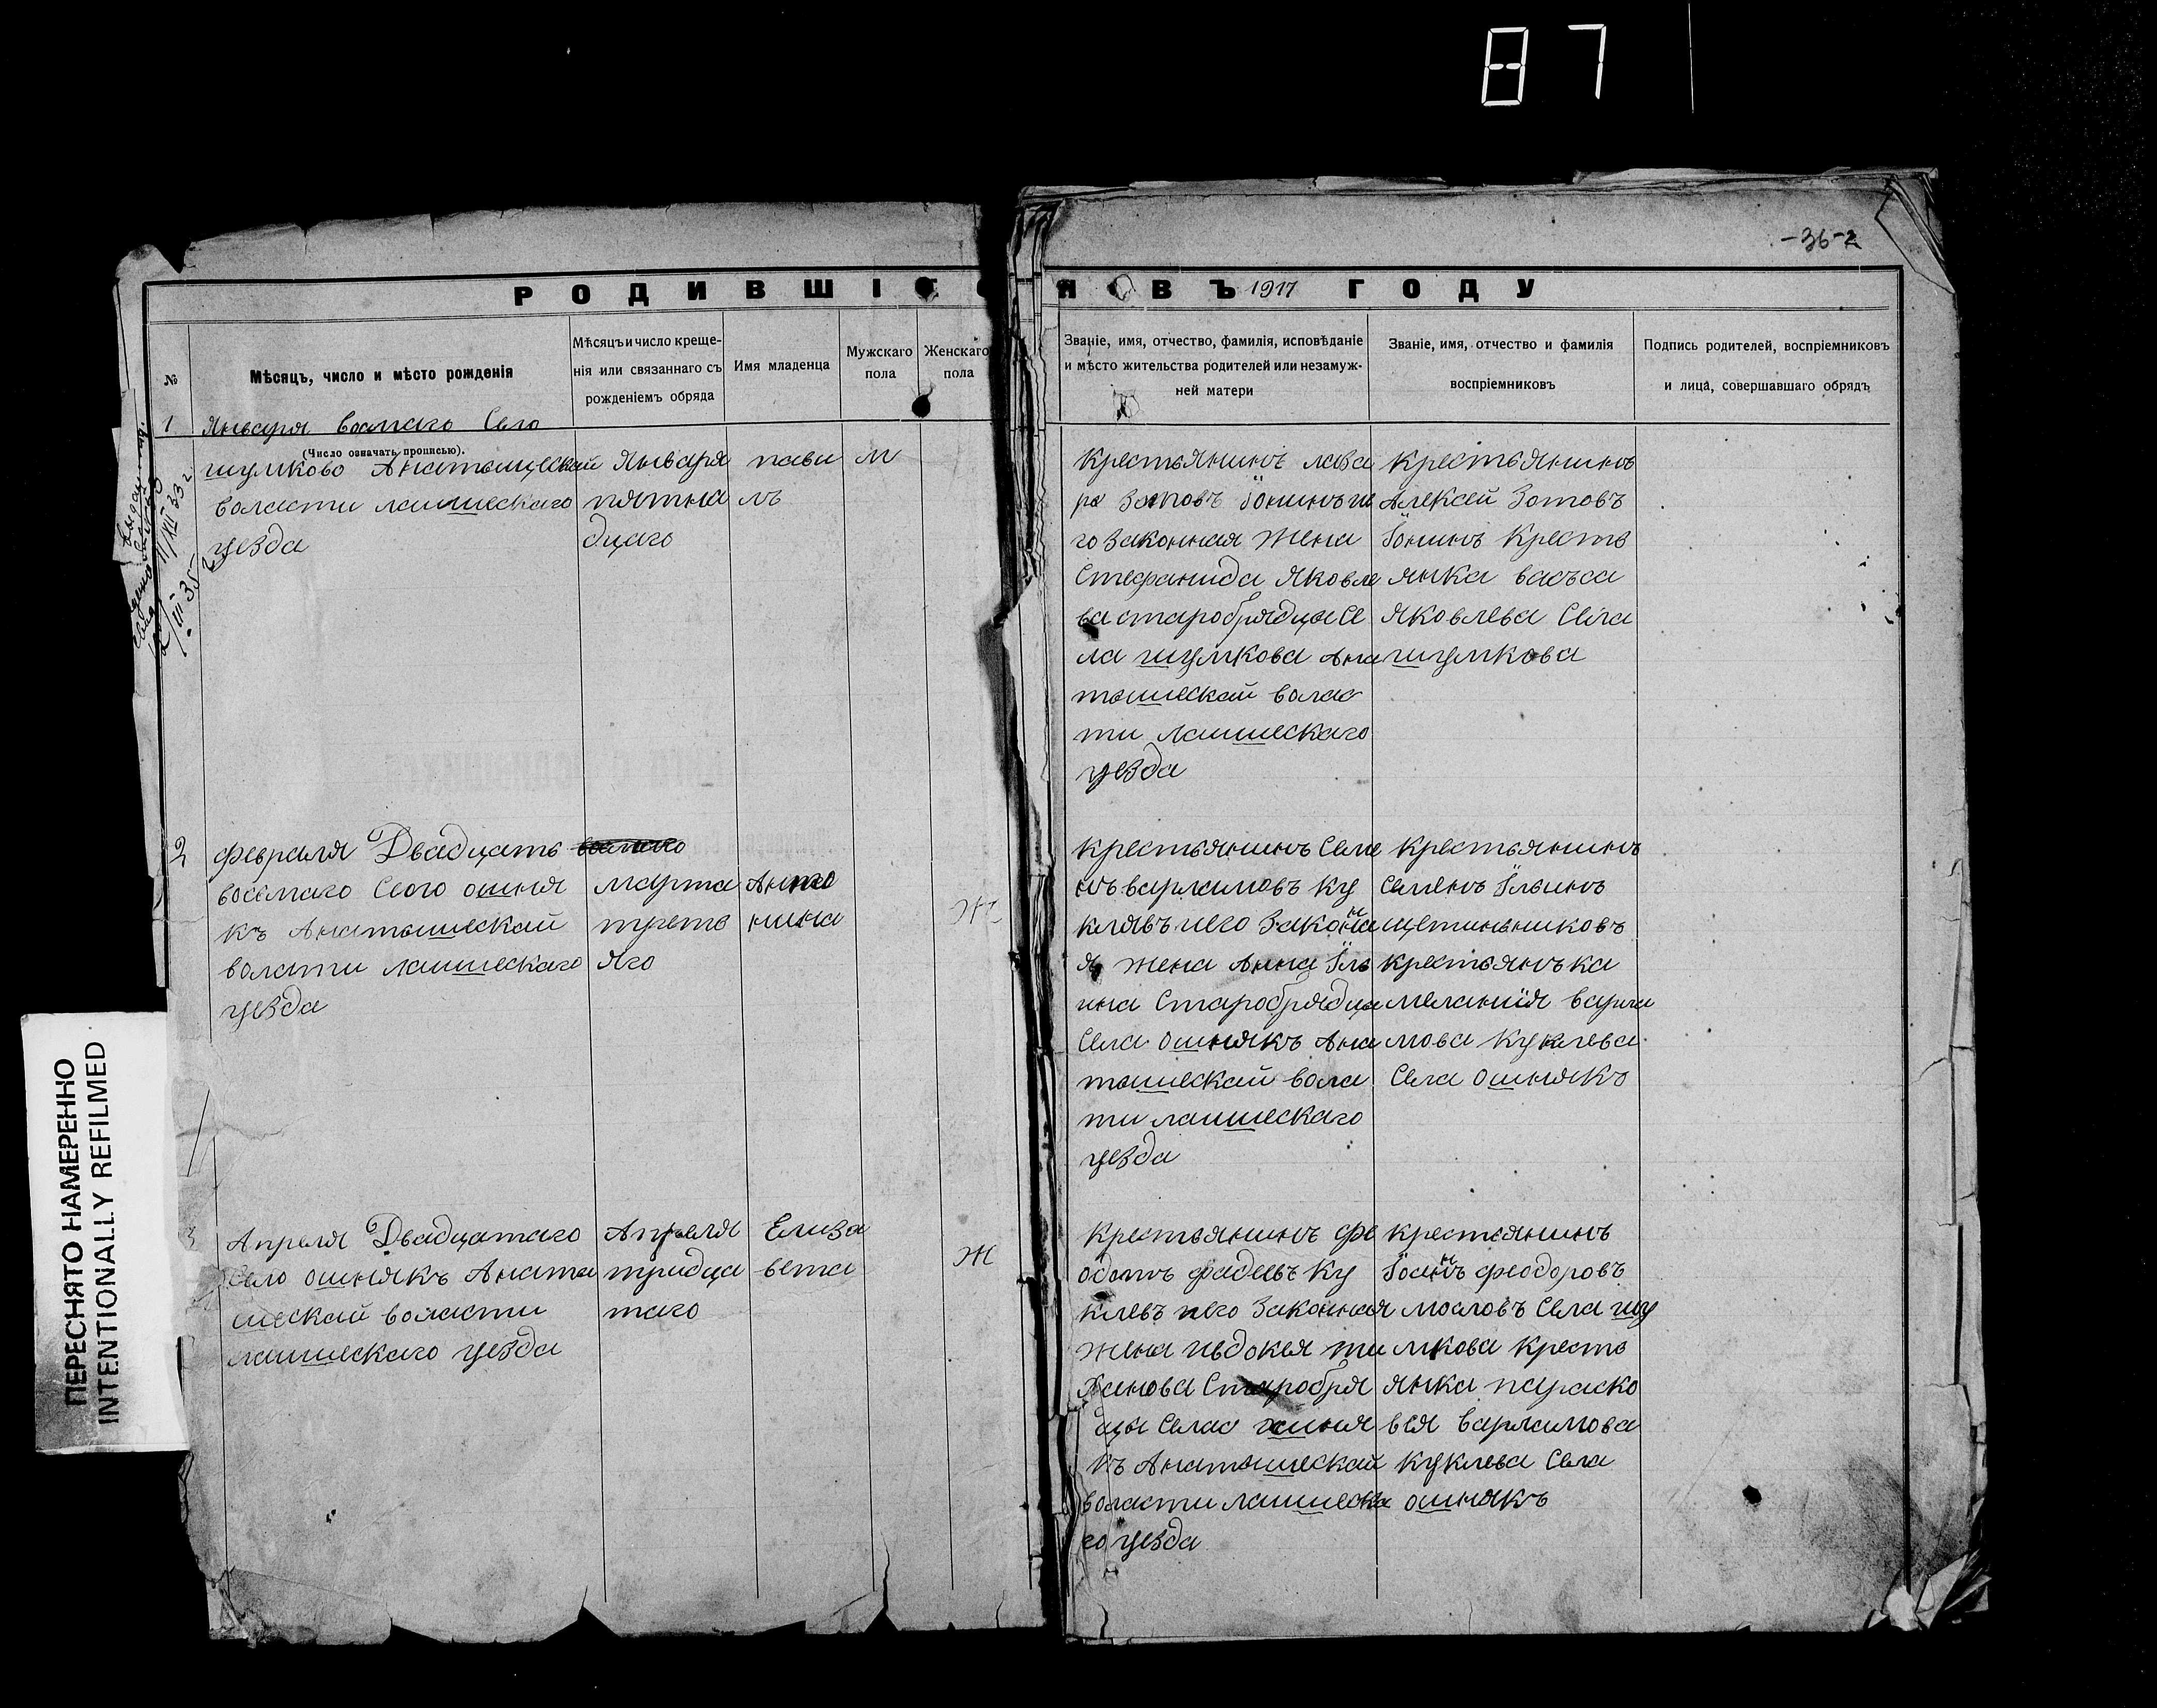 87
-36-2
РОДИВШІЕСЯ ВЪ 1917 ГОДУ
№
Мѣсяцъ, число и мѣсто рожденія
(Число означать прописью).
Мѣсяцъ и число креще-
нія или связаннаго съ
рожденіемъ обряда
Имя младенца
Мужскаго
пола
Женскаго
пола
Званіе, имя, отчество, фамилія, исповѣданіе
и мѣсто жительства родителей или незамуж-
ней матери
Званіе, имя, отчество и фамилія
воспріемниковъ
Подпись родителей, воспріемниковъ
и лица, совершавшаго обрядъ
1
Января восмаго Село
шумково Анатышеской
воласти лаишескаго
уезда
Января
пятна
дцаго
пави
лъ
м
Крестьянинъ лаза
ро Зотовъ Іонинъ ие
го Законная Жена
Стефанида Яковле
ва старобрядцы Се
ла шумкова Ана
тышеской волас
ти лаишескаго
уезда
Крестьянинъ
Алексей Зотовъ
Іонинъ Кресть
янка васъса
Яковлева Села
шумкова
2
февраля Двадцать
восемаго Сеого ошня
къ Анатышеской
воласти лаишескаго
уезда
марта
треть
яго
Анто
нина
Ж
Крестьянинъ Семе
нъ варламовъ Ку
клявъ иего Законна
я жена Анна Іль
ина Старобрядцы
Села ошнякъ Ана
тышеской волас
ти лаишескаго
уезда
Крестьянинъ
Семенъ Ільинъ
щетинъниковъ
Крестьянъка
мелания варла
мова Куклева
Села ошнякъ
3
Апреля Двадцатаго
Село ошнякъ Анаты
шеской воласти
лаишескаго уезда
Апреля
тридца
таго
Елиза
вета
Ж
Крестьянинъ Фе
одотъ фадеевъ Ку
клевъ иего Законная
Жена Ивдокея ти
ханова Старобря
дцы Села ошня
къ Анатышеской
воласти лаишеска
го уезда
Крестьянинъ
Іоаннъ Феодоровъ
масловъ Села шу
мкова Кресть
янка параско
вея варламова
Куклева Села
ошнякъ
ПЕРЕСНЯТО НАМЕРЕННО
INTENTIONALLY REFILMED